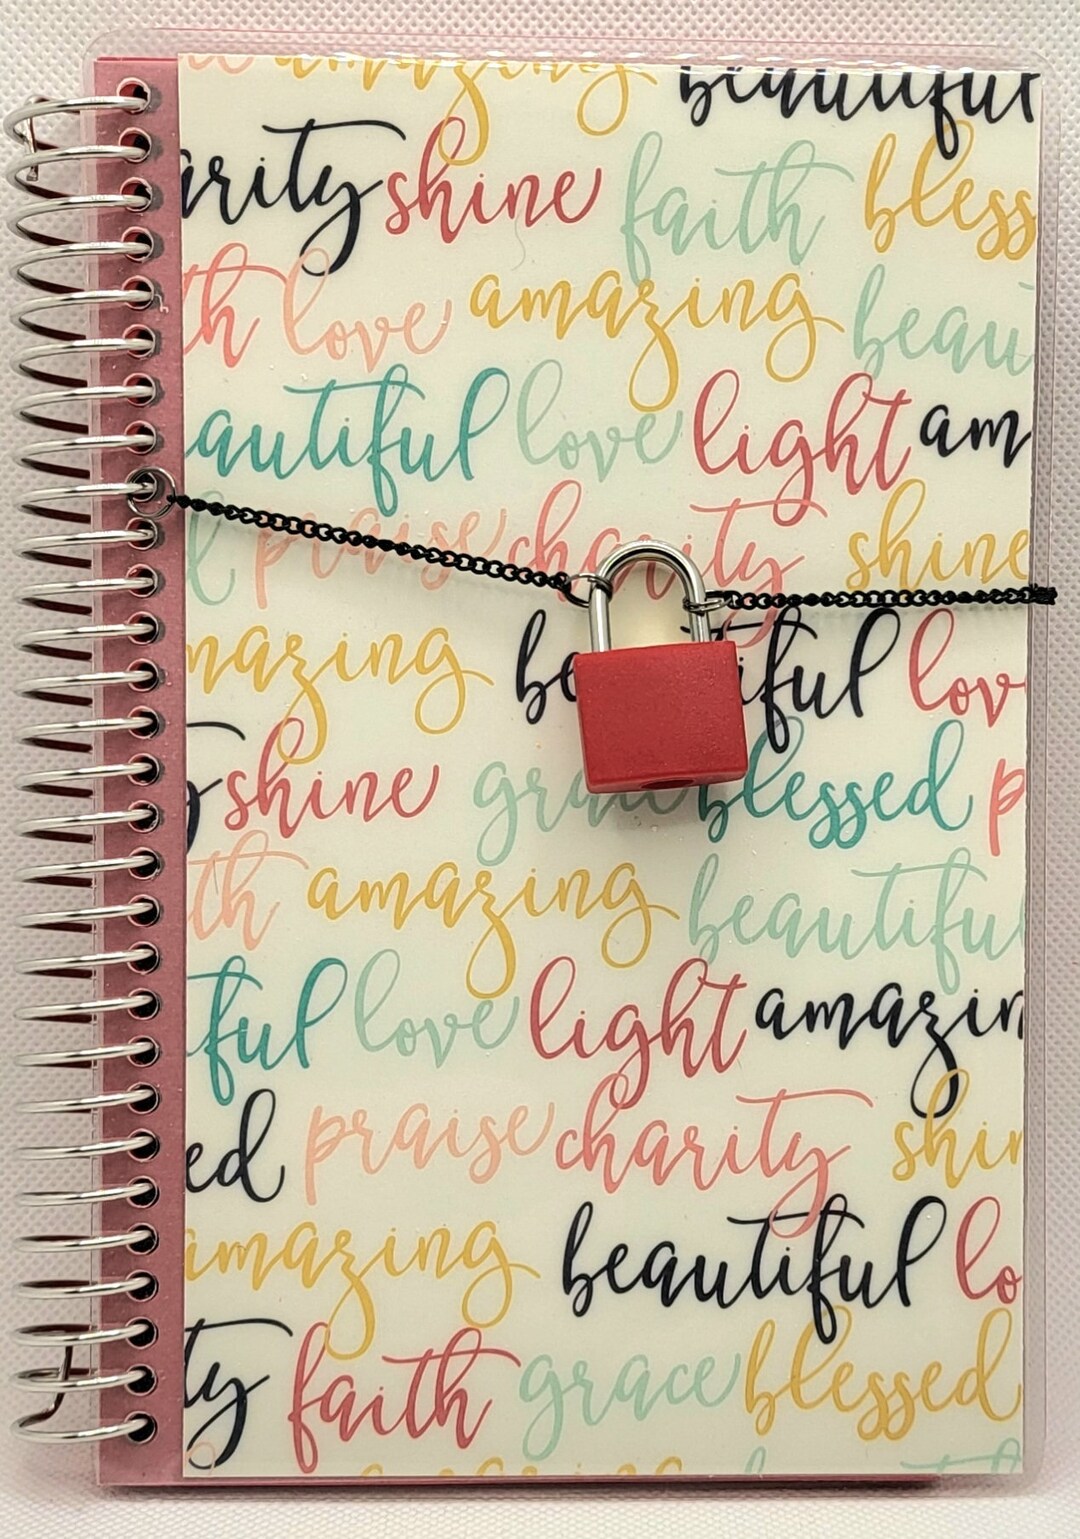 amazing beautiful
arity shine faith bless
th love amazing beau
autiful love light am
l praise charity shine
mazing be iful lov
shine grace blessed p
th amazing beautiful
ful love light amazin
ed praise charity shin
amazing beautiful lo
ty faith grace blessed